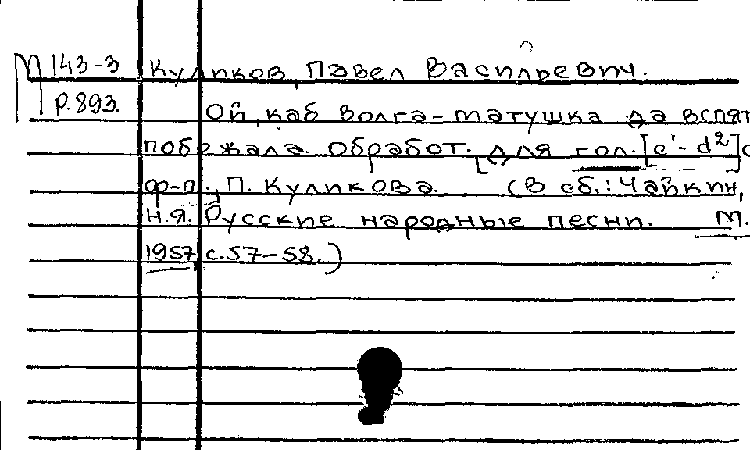 М 143-3 Куликов, Павел Васильевич.
Р.893. Ой, каб Волга-матушка да вспят
побежала. Обработ. для гол. [e'-d²] с
ф-п., П. Куликова. (В сб.: Чайкин,
Н.Я. Русские народные песни. М.
1957, с.57-58.)